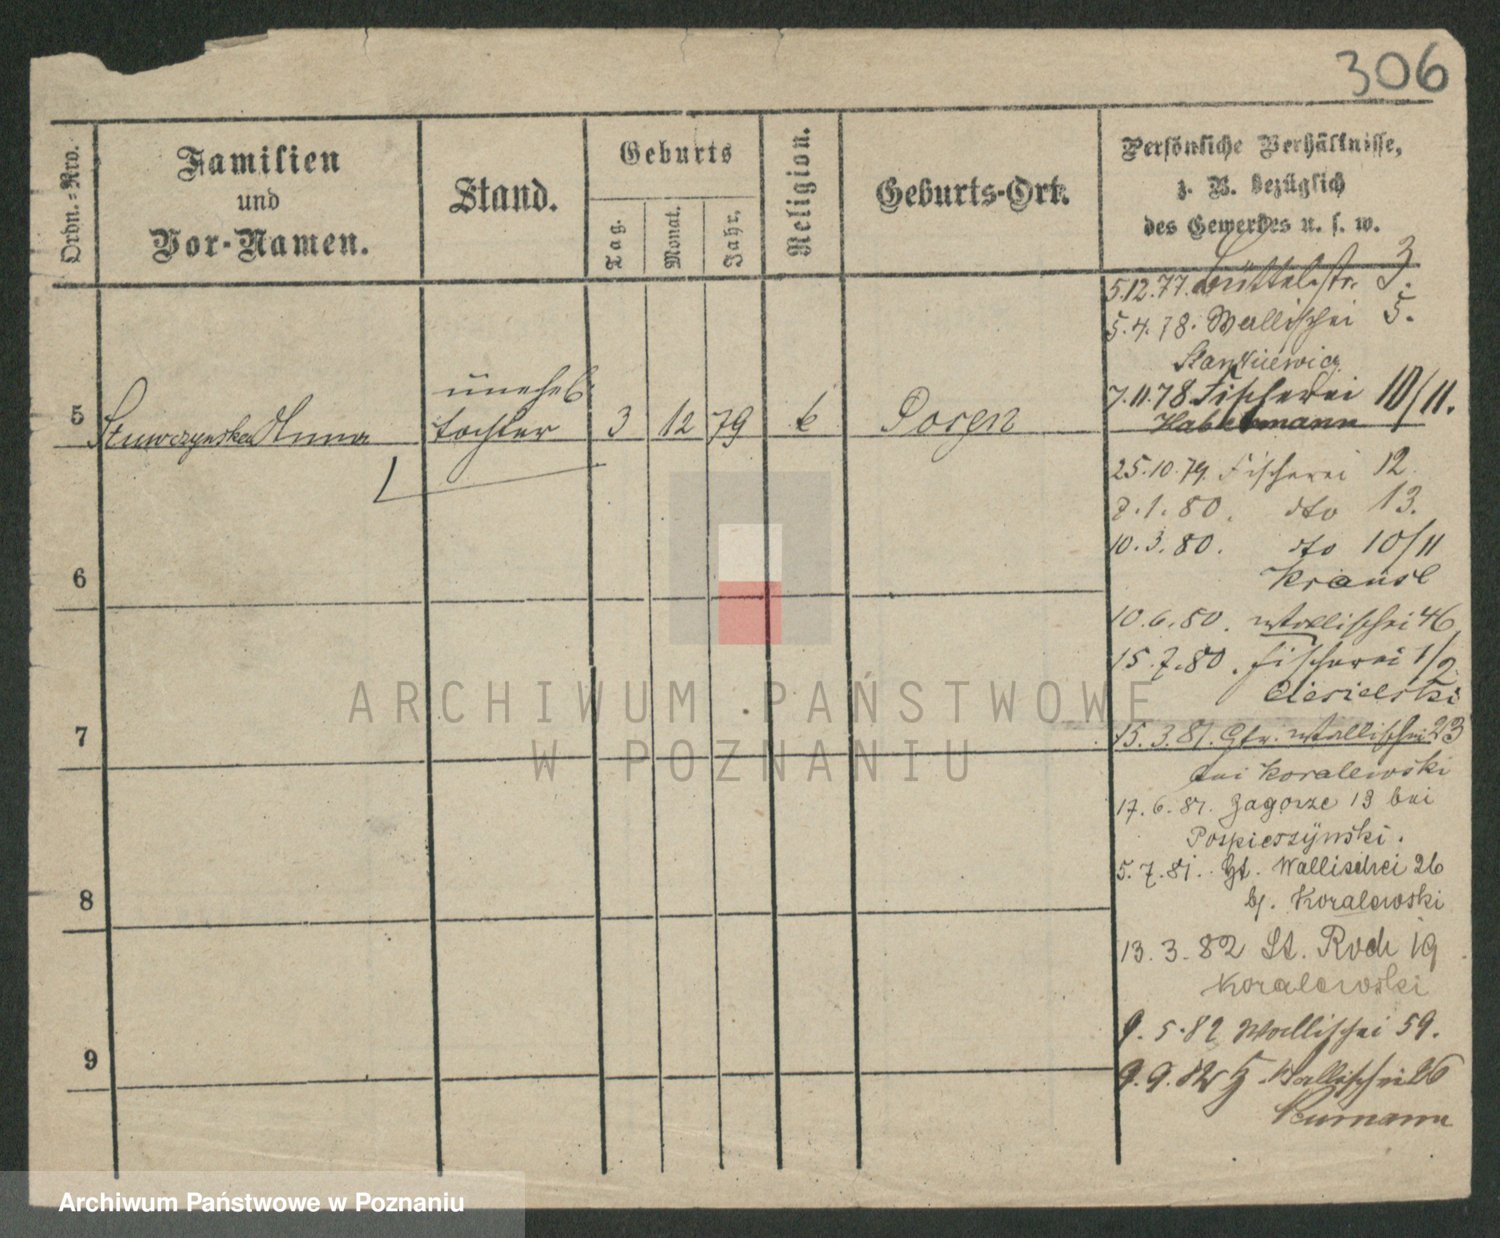 306
Ordn.-Nro.
Familien
und
Vor-Namen.
Stand.
Geburts
Tag.
Monat.
Jahr.
Religion.
Geburts-Ort.
Persönliche Verhältnisse,
z. B. bezüglich
des Gewerbes u. s. w.
5.12.77. Büttelstr. 3.
5.4.78. Wallischei 5.
Stankiewicz
7.11.78 Fischerei 10/11.
Habermann
5 Anna unehel.
tochter 3 12 79 k Posen
25.10.79. Fischerei 12
8.1.80. dto 13.
10.3.80. dto 10/11
Krause
6
10.6.80. Wallischei 46
15.7.80. Fischerei 1/2
Ciesielski
7
15.3.81. Wallischei 23
bei Koralewski
17.6.81. Zagorze 13 bei
Pospieszynski.
5.7.81. Wallischei 26
b. Koralewski
8
13.3.82 St. Roch 19
Koralewski
9.5.82 Wallischei 59.
9
9.9.82 Wallischei 26
Neumann
ARCHIWUM PAŃSTWOWE
W POZNANIU
Archiwum Państwowe w Poznaniu